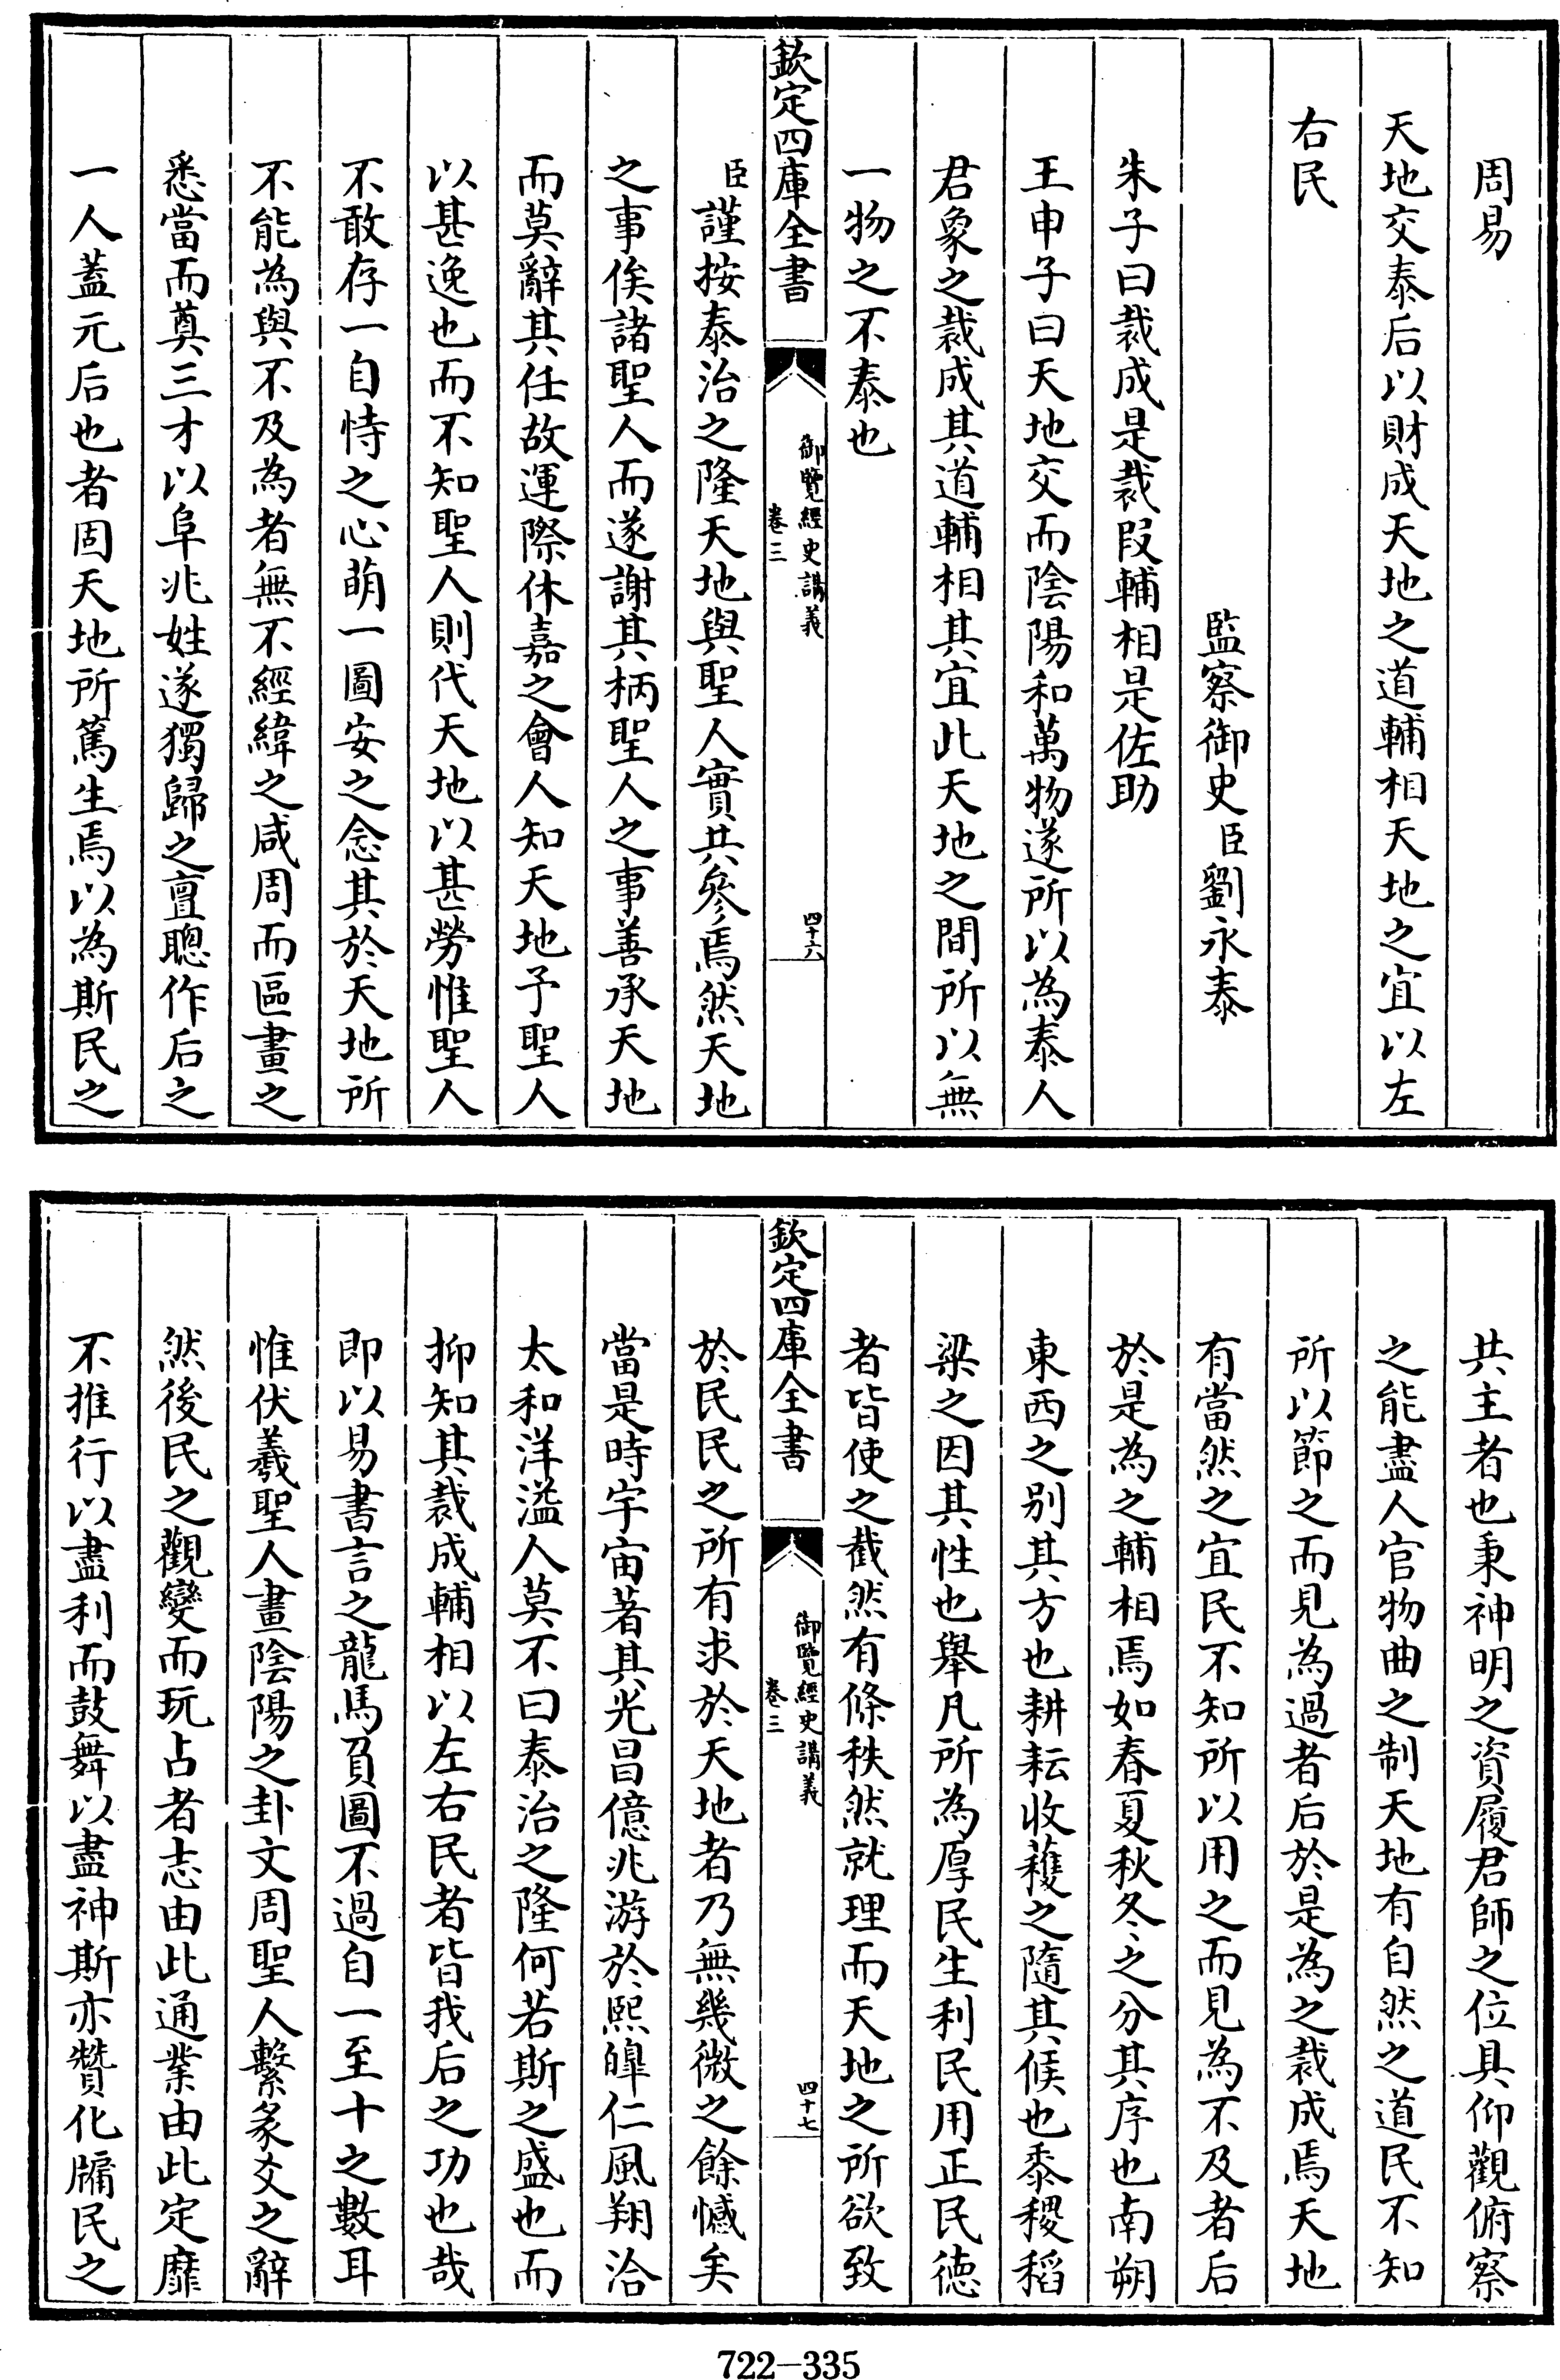 周易
天地交泰后以財成天地之道輔相天地之宜以左
右民
監察御史臣劉永泰
朱子曰裁成是裁叚輔相是佐助
王申子曰天地交而陰陽和萬物遂所以為泰人
君象之裁成其道輔相其宜此天地之間所以無
一物之不泰也
欽定四庫全書
御覽經史講義
卷三
四十六
臣謹按泰治之隆天地與聖人實共參焉然天地
之事俟諸聖人而遂謝其柄聖人之事善承天地
而莫辭其任故運際休嘉之會人知天地予聖人
以甚逸也而不知聖人則代天地以甚勞惟聖人
不敢存一自恃之心萌一圖安之念其於天地所
不能為與不及為者無不經緯之咸周而區畫之
悉當而奠三才以阜兆姓遂獨歸之亶聰作后之
一人蓋元后也者固天地所篤生焉以為斯民之
共主者也秉神明之資履君師之位具仰觀俯察
之能盡人官物曲之制天地有自然之道民不知
所以節之而見為過者后於是為之裁成焉天地
有當然之宜民不知所以用之而見為不及者后
於是為之輔相焉如春夏秋冬之分其序也南朔
東西之别其方也耕耘收穫之隨其候也黍稷稻
梁之因其性也舉凡所為厚民生利民用正民徳
者皆使之截然有條秩然就理而天地之所欲致
欽定四庫全書
御覽經史講義
卷三
四十七
於民民之所有求於天地者乃無幾微之餘憾矣
當是時宇宙著其光昌億兆游於熙皥仁風翔洽
太和洋溢人莫不曰泰治之隆何若斯之盛也而
抑知其裁成輔相以左右民者皆我后之功也哉
即以易書言之龍馬負圖不過自一至十之數耳
惟伏羲聖人畫陰陽之卦文周聖人繫彖爻之辭
然後民之觀變而玩占者志由此通業由此定靡
不推行以盡利而鼓舞以盡神斯亦贊化牖民之
722—335